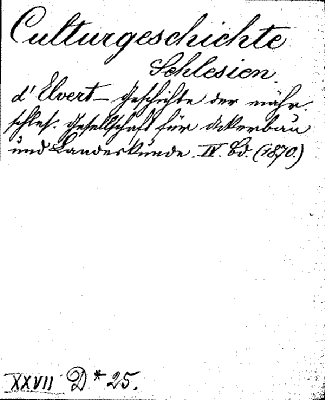 Culturgeschichte
Schlesien.
d'Elvert – Geschichte der mähr.
schles. Gesellschaft für Ackerbau
und Landeskunde. IV. Bd. (1870.)
XXVII D* 25.